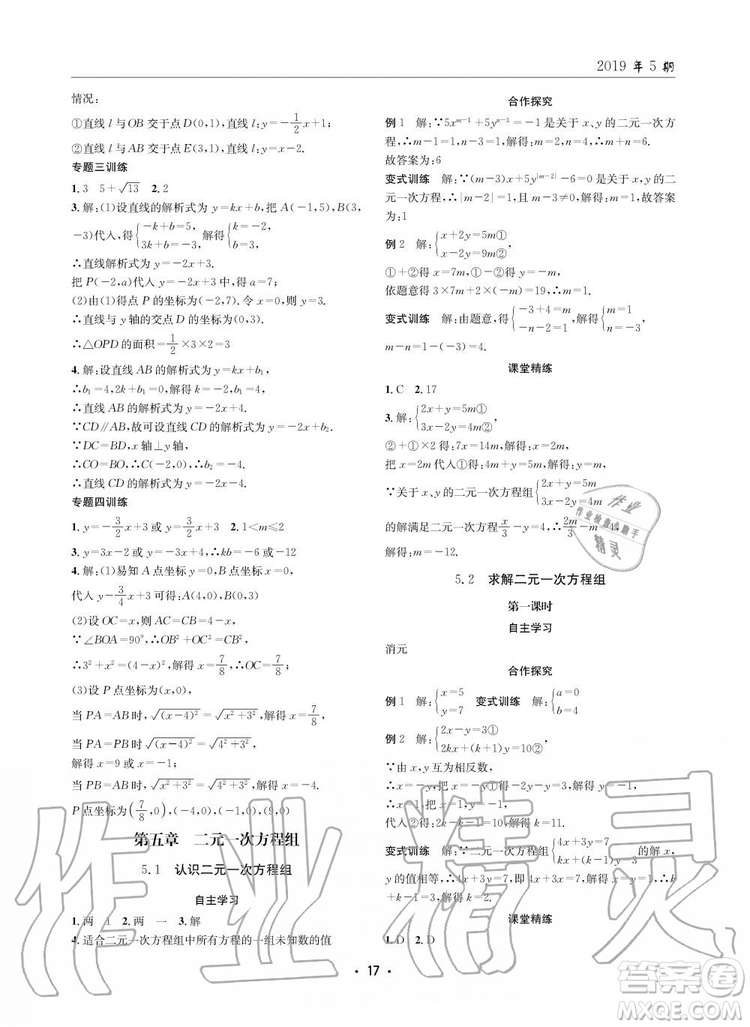 2019 年 5 期
情况：
①直线 l 与 OB 交于点 D(0,1)，直线 l：y=-1/2x+1；
②直线 l 与 AB 交于点 E(3,1)，直线 l：y=-x+4.
专题三训练
1. 3 5+√13 2. 2
3. 解：(1)设直线的解析式为 y=kx+b，把 A(-1,5)，B(3,
-3)代入，得{-k+b=5, 3k+b=-3，解得{k=-2, b=3，
∴直线解析式为 y=-2x+3.
把 P(-2,a)代入得 a=7；
(2)由(1)得点 P 的坐标为(-2,7). 令 x=0，则 y=3.
∴直线与 y 轴的交点 D 的坐标为(0,3).
∴△OPD 的面积=1/2×3×2=3
4. 解：设直线 AB 的解析式为 y=kx+b₁，
∴b₁=4,2k+b₁=0，解得 b₁=4,k=-2.
∴直线 AB 的解析式为 y=-2x+4.
∵CD∥AB，故可设直线 CD 的解析式为 y=-2x+b₂，
∵DC=DB，x 轴⊥y 轴，
∴CO=BO=2. ∴C(-2,0). ∴b₂=-4.
∴直线 CD 的解析式为 y=-2x-4.
专题四训练
1. y=-3/2x+3或 y=3/2x+3 2. 1<m≤2
3. y=3x-2 或 y=-3x+2 kb=-6 或-12
4. 解：(1)易知 A 点坐标(4,0)，B 点坐标(0,3)
代入 y=-3/4x+3 可得：A(4,0)，B(0,3)
(2)设：OC=x，则 AC=CB=4-x，
∵∠BOA=90°，∴OB²+OC²=CB²，
∴3²+x²=(4-x)²，解得 x=7/8，∴OC=7/8
(3)设 P 点坐标为(x,0)，
当 PA=PB 时，√(x-4)²=√x²+3²，解得 x=7/8，
当 PA=AB 时，√(x-4)²=√4²+3²，
解得 x=9 或 x=-1；
当 PB=AB 时，√x²+3²=√4²+3²，解得 x=-4.
P 点坐标为(7/8,0)，(-4,0)，(-1,0)，(9,0)
第五章 二元一次方程组
5.1 认识二元一次方程组
自主学习
1. 两 1 2. 两 一 3. 解
4. 适合二元一次方程组中所有方程的一组未知数的值
合作探究
例 1 解：∵5x^(m-1)+5y^(n-3)=-1 是关于 x、y 的二元一次方
程，∴m-1=1，n-3=1，解得：m=2，n=4，m+n=6.
故答案为：6
变式训练 解：∵(m-3)x+5y^|m-2|=-6 是关于 x、y 的二
元一次方程，∴|m-2|=1，且 m-3≠0，解得 m=1，故答案
为：1
例 2 解：{x+2y=5m①, x-2y=9m②，
①+②得 x=7m，①-②得 y=-m，
依题意得 3×7m+2×(-m)=19，∴m=1.
变式训练 解：由题意，得{-3+4=m, -n-2=1，解得{m=1, n=-3，
m-n=1-(-3)=4.
课堂精练
1. C 2. 17
3. 解：{2x+y=5m①, 3x-2y=4m②，
②+①×2 得：7x=14m，解得：x=2m，
把 x=2m 代入①得：y=m，
∵关于 x、y 的二元一次方程组{2x+y=5m, 3x-2y=4m
的解满足二元一次方程 x/3-y=-4，∴2m/3-m=-4，
解得：m=12.
5.2 求解二元一次方程组
第一课时
自主学习
消元
合作探究
例 1 解：{x=5, y=7 变式训练 解：{a=0, b=-2
例 2 解：{2x-y=3①, 2kx+(k+1)y=10②，
∵由题意，可知 x=y.
∴①可化为 2x-x=3. ∴x=3，y=3.
将 x=3，y=3 代入②中，得 6k+3(k+1)=10.
∴9k=7. ∴k=7/9.
变式训练 解：∵二元一次方程组{4x+3y=7, kx+(k-1)y=3的解 x、
y 的值相等，∴4x+3x=7，解得：x=1，则 kx+(k-1)x=3，
即 k+k-1=3，解得：k=2.
课堂精练
1. D 2. D
· 17 ·
作业
作业检查小助手
精灵
作业精灵
答案圈
MXQE.COM